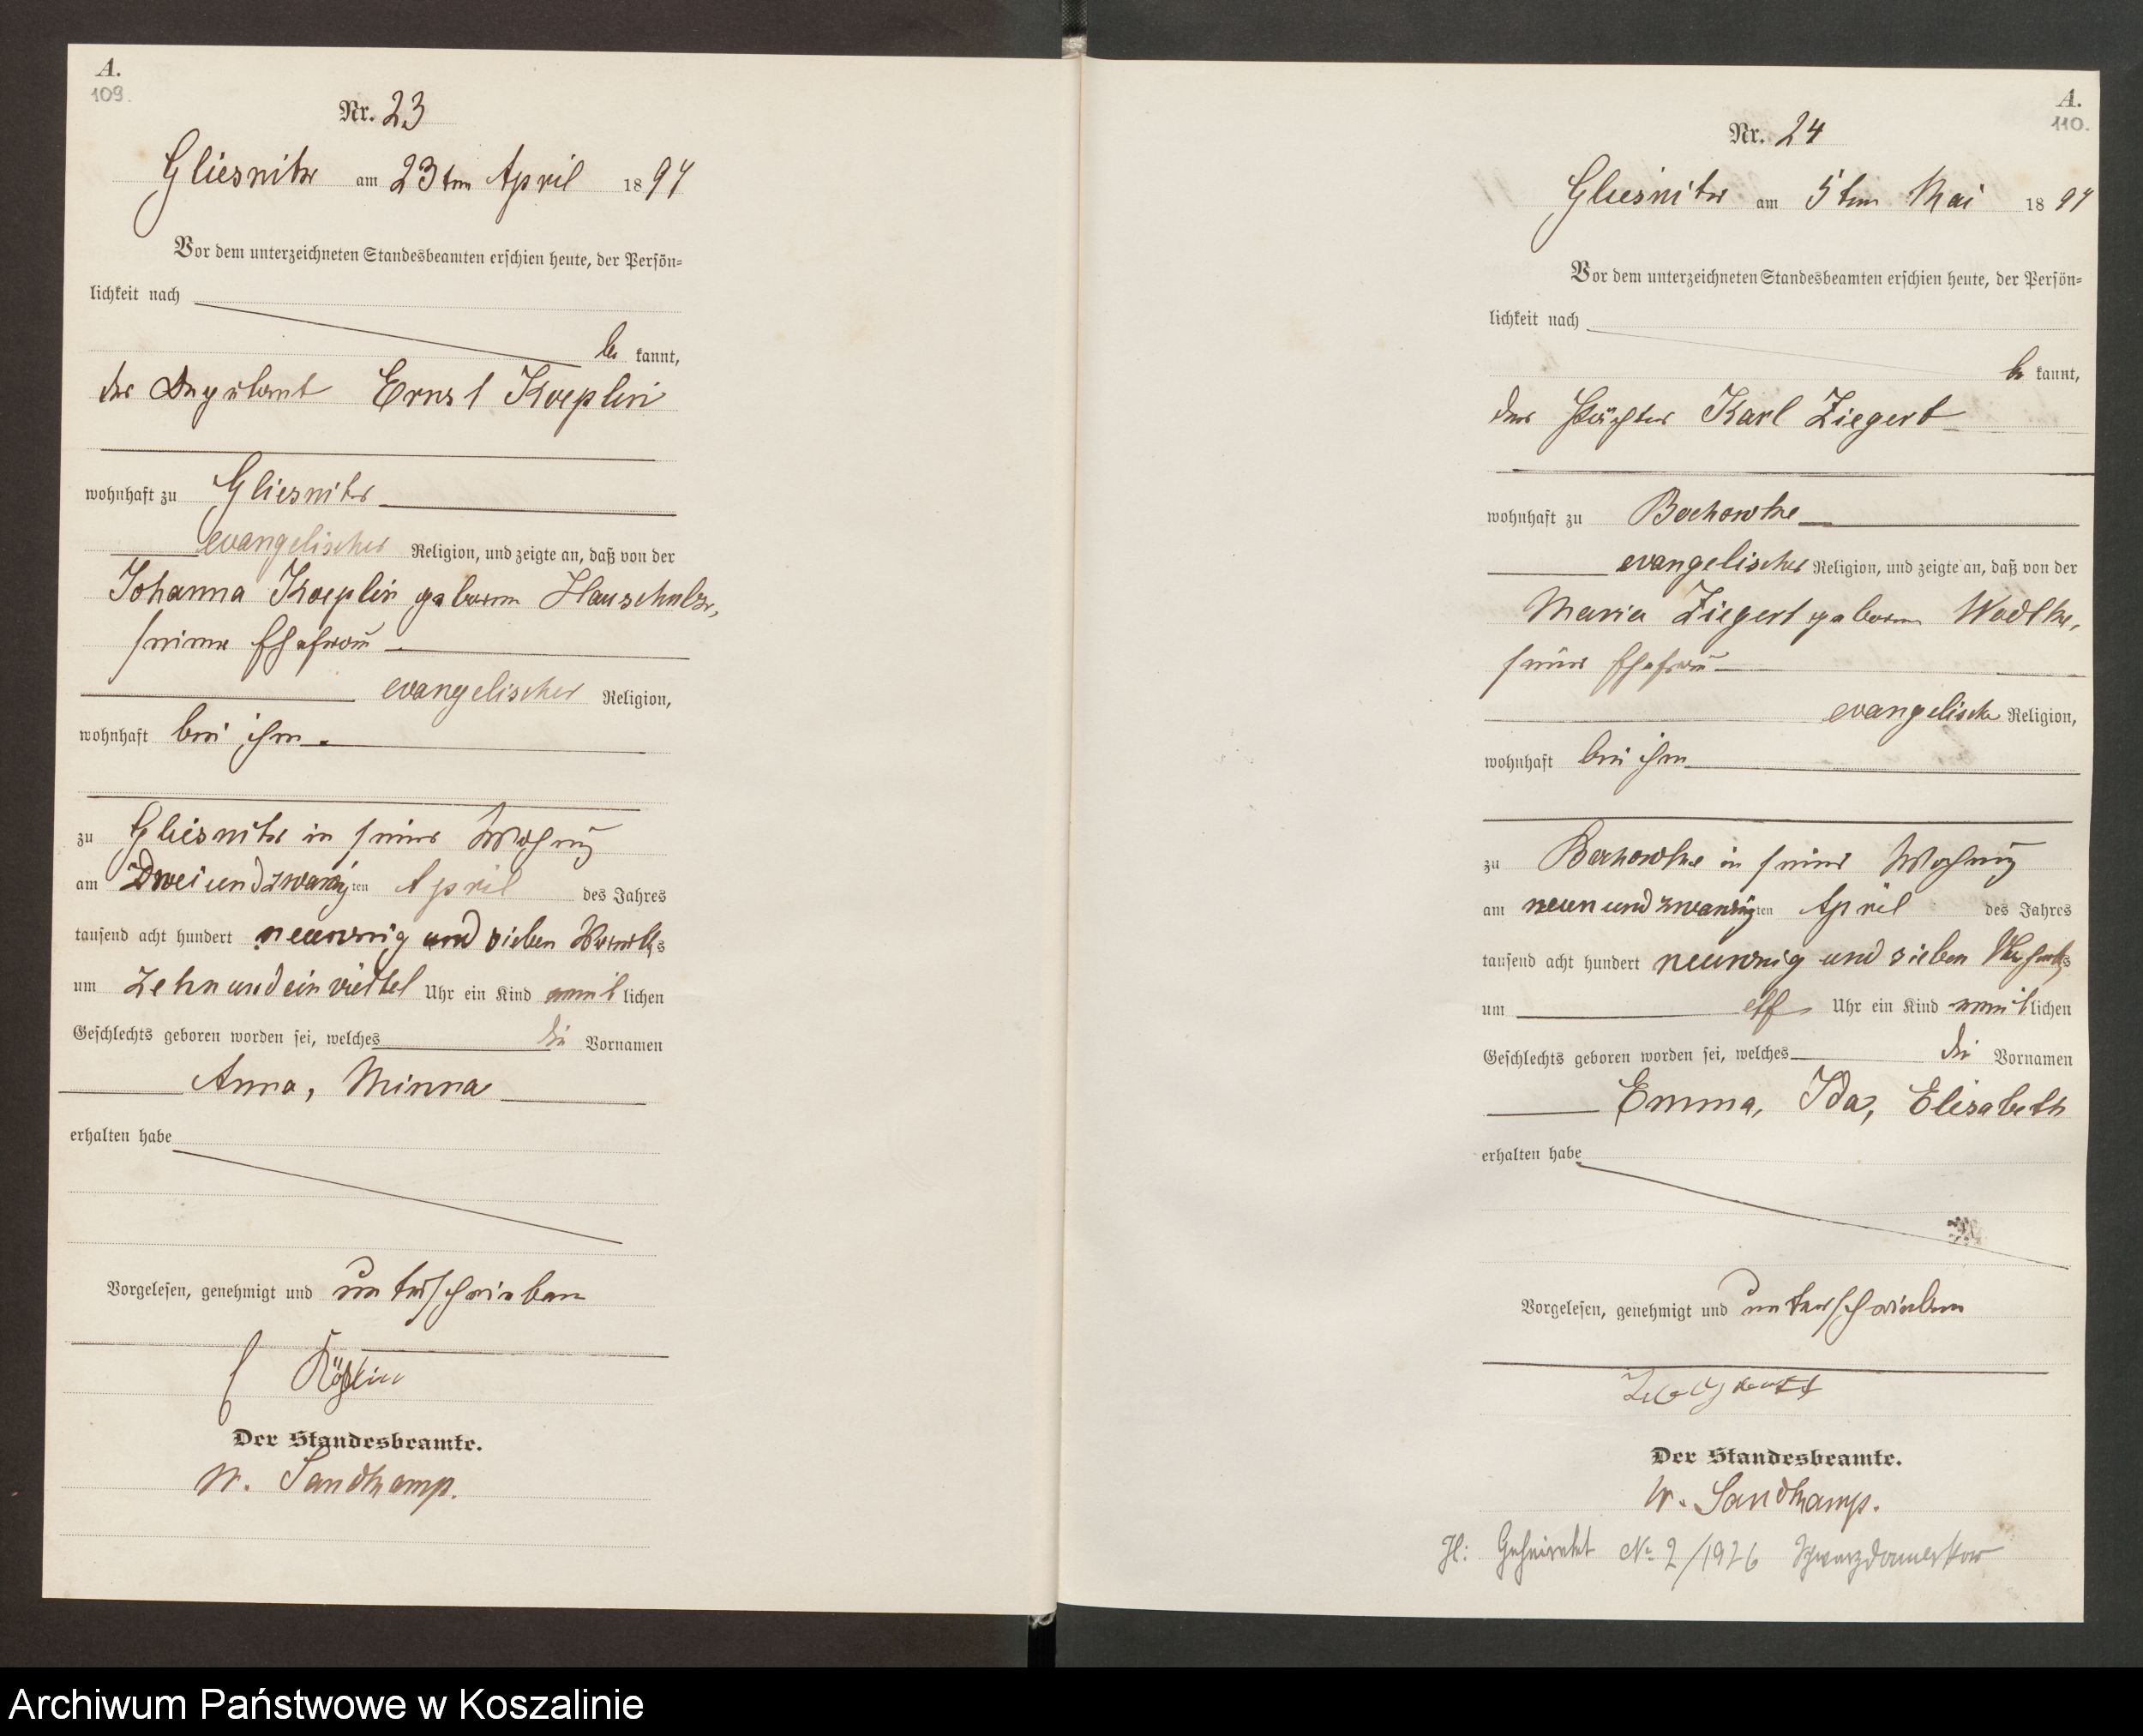 A.
109.
Nr. 23
Gliesnitz am 23ten April 1897
Vor dem unterzeichneten Standesbeamten erschien heute, der Persön=
lichkeit nach
be kannt,
der Ernst Koeplin
wohnhaft zu Gliesnitz
evangelischer Religion, und zeigte an, daß von der
Johanna Koeplin geborenen Hauschulz,
seiner Ehefrau
evangelischer Religion,
wohnhaft bei ihm
zu Gliesnitz in seiner Wohnung
am zweiundzwanzigten April des Jahres
tausend acht hundert neunzig und sieben Vormittags
um zehn und ein viertel Uhr ein Kind weiblichen
Geschlechts geboren worden sei, welches die Vornamen
Anna, Minna
erhalten habe
Vorgelesen, genehmigt und unterschrieben
E Köplin
Der Standesbeamte.
W. Sandkamp.
A.
110.
Nr. 24
Gliesnitz am 5ten Mai 1897
Vor dem unterzeichneten Standesbeamten erschien heute, der Persön=
lichkeit nach
be kannt,
der Pächter Karl Ziegert
wohnhaft zu Bochowke
evangelischer Religion, und zeigte an, daß von der
Maria Ziegert geborenen Wodtke,
seiner Ehefrau
evangelische Religion,
wohnhaft bei ihm
zu Bochowke in seiner Wohnung
am neunundzwanzigten April des Jahres
tausend acht hundert neunzig und sieben Vormittags
um elf Uhr ein Kind weiblichen
Geschlechts geboren worden sei, welches die Vornamen
Emma, Ida, Elisabeth
erhalten habe
Vorgelesen, genehmigt und unterschrieben
Der Standesbeamte.
W. Sandkamp.
H: Geheiratet No 2/1926 Schwarzdamerkow
Archiwum Państwowe w Koszalinie